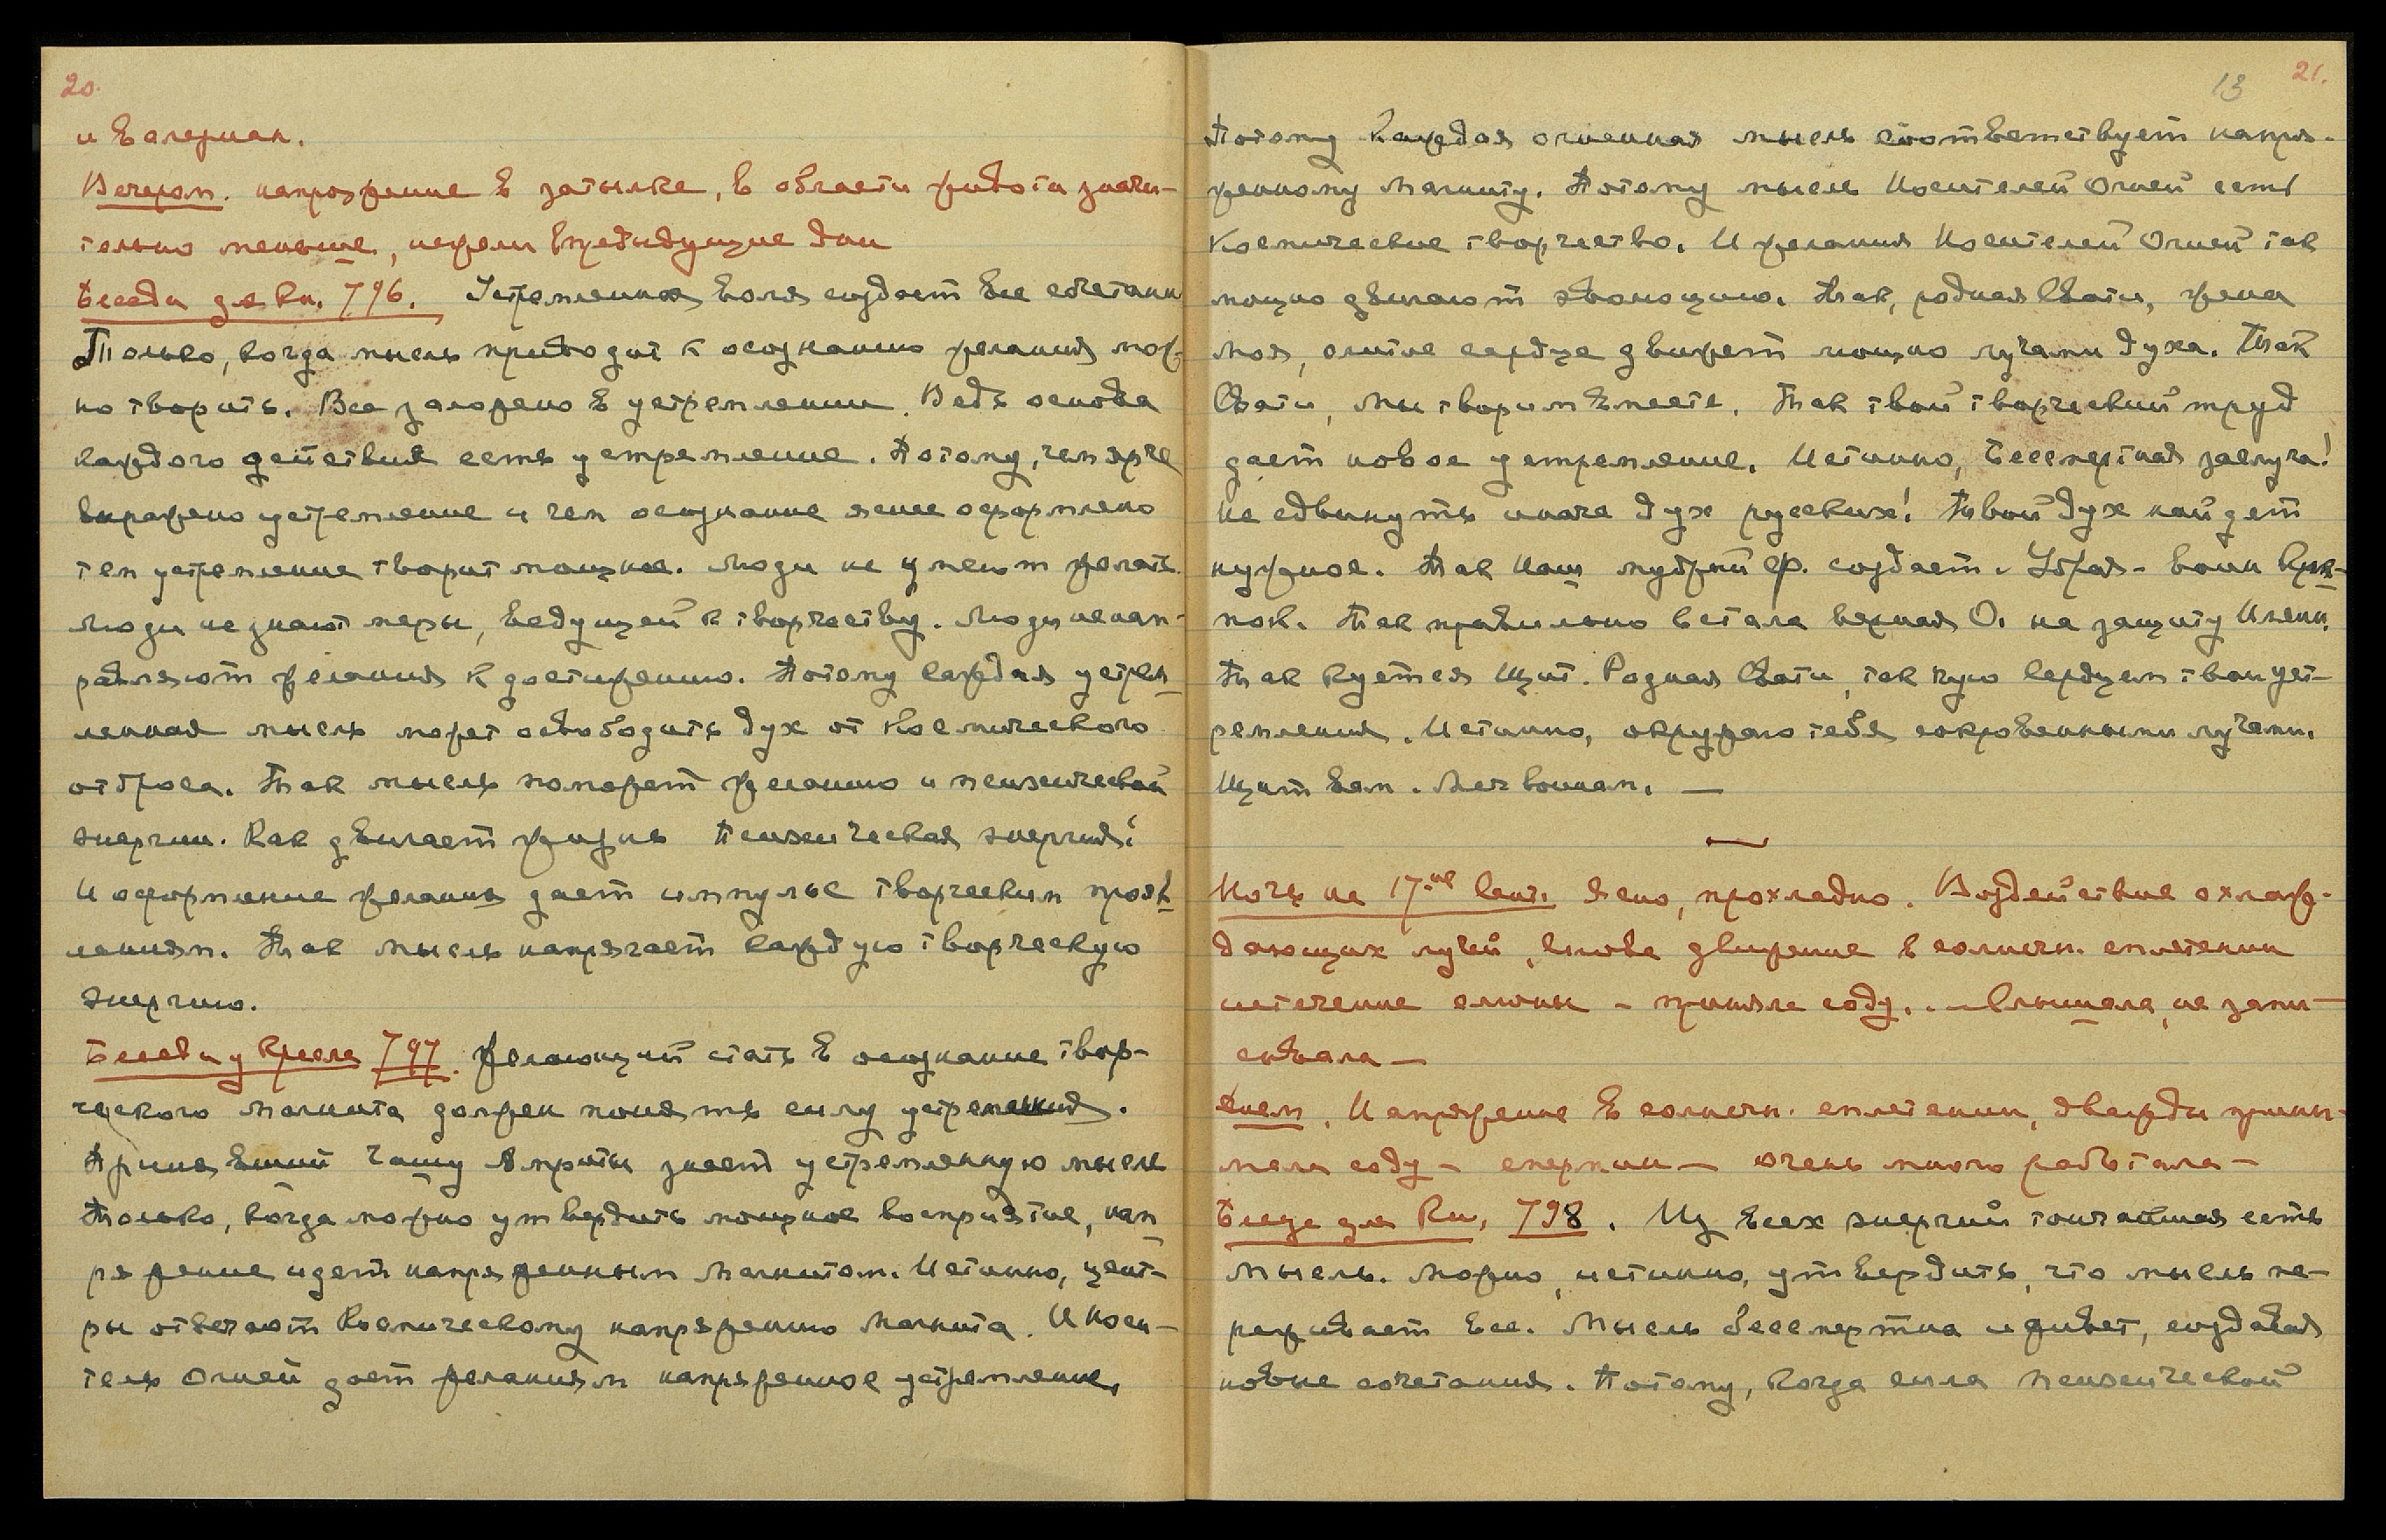 20.
и Валериан.
Вечером. напряжение в затылке, в области живота значи-
тельно меньше, нежели в предыдущие дни
Беседа для Кн. 796. Устремленная воля создает все сочетания
Только, когда мысль приводит к осознанию желания мож-
но творить. Все заложено в устремлении. Ведь основа
каждого действия есть устремление. Потому, чем ярче
выражено устремление и чем осознание яснее оформлено
тем устремление творит мощнее. Люди не умеют желать.
Люди не знают меры, ведущей к творчеству. Люди не нап-
равляют желания к достижению. Потому каждая устрем-
ленная мысль может освободить дух от Космического
отброса. Так мысль поможет желанию и психической
энергии. Как двигает жизнь Психическая энергия!
И оформление желания дает импульс творческим прояв-
лениям. Так мысль напрягает каждую творческую
энергию.
Беседа у Кресла 797. Желающий стать в осознание твор-
ческого Магнита должен понять силу устремления.
Принявший Чашу Амриты знает устремленную мысль
Только, когда можно утвердить мощное восприятие, нап-
ряжение идет напряженным Магнитом. Истинно, цент-
ры отвечают Космическому напряжению Магнита. И Носи-
тель Огней дает желаниям напряженное устремление.
13 21.
Потому каждая огненная мысль соответствует напря-
женному Магниту. Потому мысль Носителей Огней есть
Космическое творчество. И желания Носителей Огней так
мощно двигают эволюцию. Так, родная Свати, жена
моя, слитое сердце движет мощно лучами духа. Так
Свати, мы творим вместе. Так твой творческий труд
дает новое устремление. Истинно, Бессмертная заслуга!
Не сдвинуть иначе дух русских! Твой дух найдет
нужное. Так наш мудрый Ф. создает. Удрая - воин Кре-
пок. Так правильно встала верная О. на защиту Имени.
Так куется Щит. Родная Свати, так чую сердцем твои уст-
ремления. Истинно, окружаю тебя сокровенными лучами.
Щит вам. Меч воинам. —
Ночь на 17-ое сент. Ясно, прохладно. Воздействие охлаж-
дающих лучей, снова движение в солнечн. сплетении
истечение слюны - приняла соду. - Слышала, не запи-
сывала —
Днем. Напряжение в солнечн. сплетении, дважды прини-
мала соду - спермин - очень много работала -
Беседа для Кн. 798. Из всех энергий тончайшая есть
мысль. Можно, истинно, утвердить, что мысль пе-
реживает все. Мысль бессмертна и живет, создавая
новые сочетания. Потому, когда сила психической